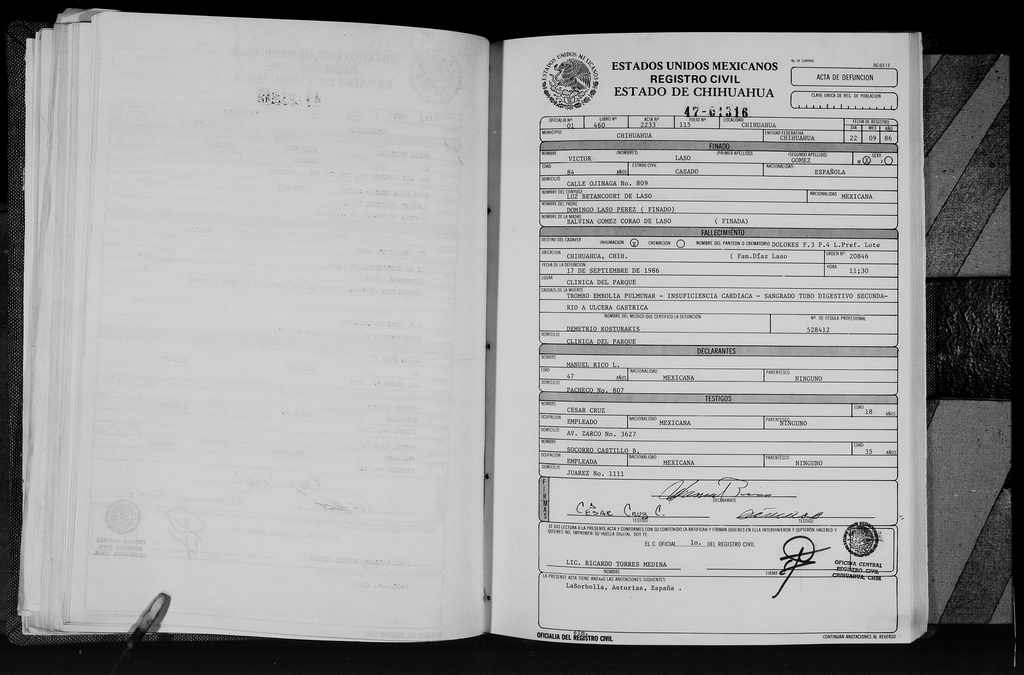 ESTADOS UNIDOS MEXICANOS
ESTADOS UNIDOS MEXICANOS
REGISTRO CIVIL
ESTADO DE CHIHUAHUA
ACTA DE DEFUNCION
CLAVE UNICA DE REG. DE POBLACION
47-01316
OFICIALIA Nº LIBRO Nº ACTA Nº FOLIO Nº LOCALIDAD FECHA DE REGISTRO
01 460 2233 115 CHIHUAHUA DIA MES AÑO
MUNICIPIO CHIHUAHUA ENTIDAD FEDERATIVA CHIHUAHUA 22 09 86
FINADO
NOMBRE (NOMBRES) (PRIMER APELLIDO) (SEGUNDO APELLIDO) SEXO
VICTOR LASO GOMEZ M X F
EDAD 84 AÑOS ESTADO CIVIL CASADO NACIONALIDAD ESPAÑOLA
DOMICILIO
CALLE OJINAGA No. 809
NOMBRE DEL CONYUGE
LUZ BETANCOURT DE LASO NACIONALIDAD MEXICANA
NOMBRE DEL PADRE
DOMINGO LASO PEREZ ( FINADO)
NOMBRE DE LA MADRE
BALVINA GOMEZ CORAO DE LASO ( FINADA)
FALLECIMIENTO
DESTINO DEL CADAVER INHUMACION X CREMACION NOMBRE DEL PANTEON O CREMATORIO DOLORES F.3 P.4 L.Pref. Lote
UBICACION CHIHUAHUA, CHIH. ( Fam.Díaz Laso ORDEN Nº 20846
FECHA DE LA DEFUNCION
17 DE SEPTIEMBRE DE 1986 HORA 11;30
LUGAR
CLINICA DEL PARQUE
CAUSA(S) DE LA MUERTE
TROMBO EMBOLIA PULMUNAR - INSUFICIENCIA CARDIACA - SANGRADO TUBO DIGESTIVO SECUNDA-
RIO A ULCERA GASTRICA
NOMBRE DEL MEDICO QUE CERTIFICO LA DEFUNCION Nº. DE CEDULA PROFESIONAL
DEMETRIO KOSTURAKIS 528412
DOMICILIO
CLINICA DEL PARQUE
DECLARANTES
NOMBRE
MANUEL RICO L.
EDAD 47 AÑOS NACIONALIDAD MEXICANA PARENTESCO NINGUNO
DOMICILIO
PACHECO No. 807
TESTIGOS
NOMBRE
CESAR CRUZ EDAD 18 AÑOS
OCUPACION EMPLEADO NACIONALIDAD MEXICANA PARENTESCO NINGUNO
DOMICILIO AV. ZARCO No. 3627
NOMBRE
SOCORRO CASTILLO B. EDAD 35 AÑOS
OCUPACION EMPLEADA NACIONALIDAD MEXICANA PARENTESCO NINGUNO
DOMICILIO JUAREZ No. 1111
FIRMAS
DECLARANTE
CESAR CRUZ C.
TESTIGO TESTIGO
SE DIO LECTURA A LA PRESENTE ACTA Y CONFORMES CON SU CONTENIDO LA RATIFICAN Y FIRMAN QUIENES EN ELLA INTERVINIERON Y SUPIERON HACERLO Y
QUIENES NO, IMPRIMEN SU HUELLA DIGITAL. DOY FE.
EL C. OFICIAL 1o. DEL REGISTRO CIVIL
LIC. RICARDO TORRES MEDINA
NOMBRE FIRMA
OFICINA CENTRAL
REGISTRO CIVIL
CHIHUAHUA, CHIH.
LA PRESENTE ACTA TIENE ANEXAS LAS ANOTACIONES SIGUIENTES:
LaBorbolla, Asturias, España .
OFICIALIA DEL REGISTRO CIVIL
CONTINUAN ANOTACIONES AL REVERSO